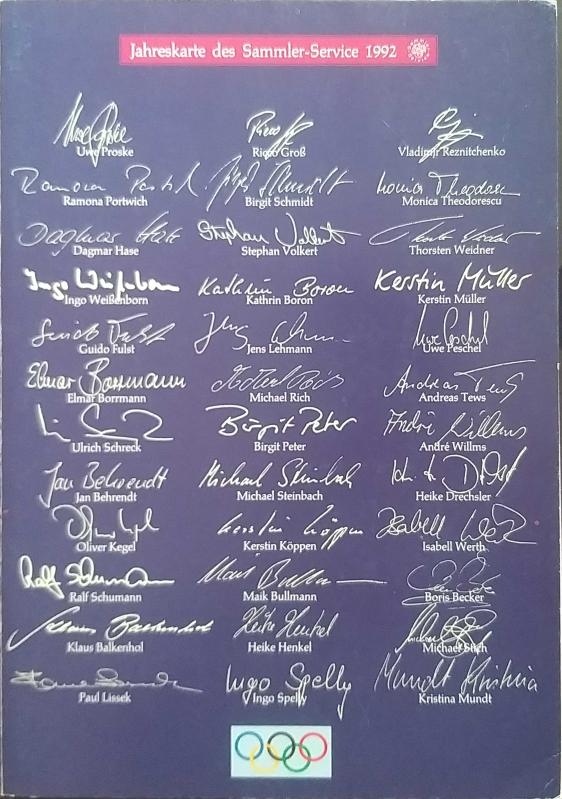 Jahreskarte des Sammler-Service 1992
Uwe Proske Ricco Groß Vladimir Reznitchenko
Ramona Portwich Birgit Schmidt Monica Theodorescu
Dagmar Hase Stephan Volkert Thorsten Weidner
Ingo Weißenborn Kathrin Boron Kerstin Müller
Guido Fulst Jens Lehmann Uwe Peschel
Elmar Borrmann Michael Rich Andreas Tews
Ulrich Schreck Birgit Peter André Willms
Jan Behrendt Michael Steinbach Heike Drechsler
Oliver Kegel Kerstin Köppen Isabell Werth
Ralf Schumann Maik Bullmann Boris Becker
Klaus Balkenhol Heike Henkel Michael Stich
Paul Lissek Ingo Spelly Kristina Mundt